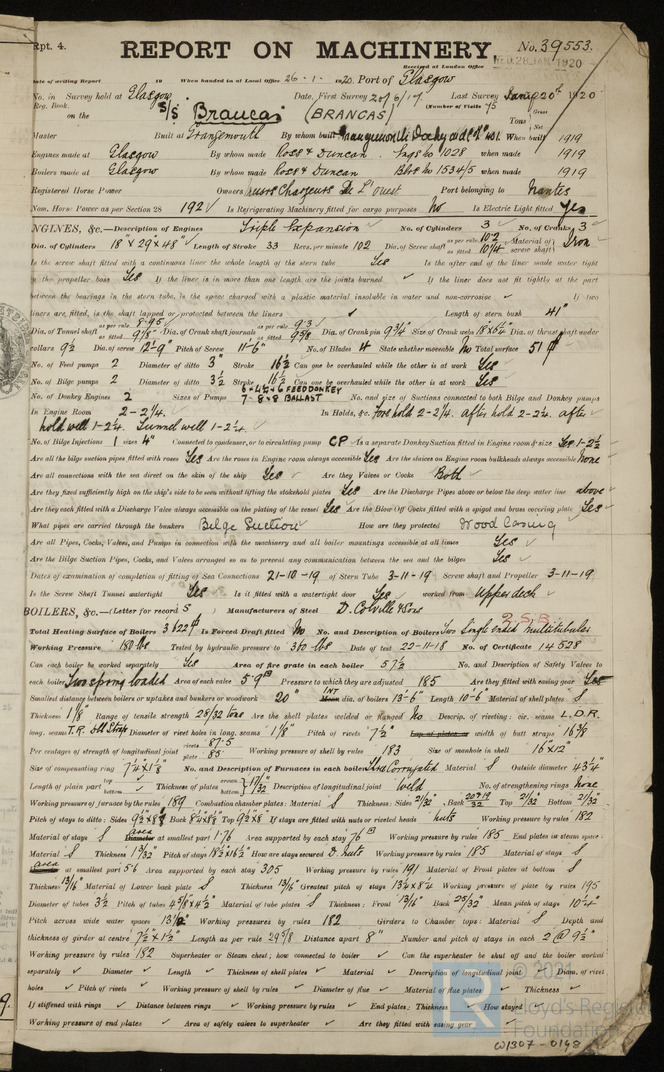 Rpt. 4.
REPORT ON MACHINERY.
No. 39553.
Received at London Office WED. 28 JAN. 1920
Date of writing Report 19 When handed in at Local Office 26 - 1 - 1920. Port of Glasgow
No. in Survey held at Glasgow Date, First Survey 20/6/17. Last Survey 20th 1920
Reg. Book. (Number of Visits 75
on the S/S "Brancas" (BRANCAS) Tons Gross Net
Master Built at Grangemouth By whom built When built 1919
Engines made at Glasgow By whom made Ross & Duncan. Engs No 1028 when made 1919
Boilers made at Glasgow By whom made Ross & Duncan Blrs No 1534/5 when made 1919
Registered Horse Power Owners Chargeurs De L'Ouest Port belonging to Nantes
Nom. Horse Power as per Section 28 192 Is Refrigerating Machinery fitted for cargo purposes No Is Electric Light fitted Yes
ENGINES, &c.—Description of Engines Triple Expansion No. of Cylinders 3 No. of Cranks 3
Dia. of Cylinders 18" x 29 x 48" Length of Stroke 33 Revs. per minute 102 Dia. of Screw shaft as per rule 10.2 as fitted 10¼ Material of screw shaft Iron
Is the screw shaft fitted with a continuous liner the whole length of the stern tube Yes Is the after end of the liner made water tight
in the propeller boss Yes If the liner is in more than one length are the joints burned ✓ If the liner does not fit tightly at the part
between the bearings in the stern tube, is the space charged with a plastic material insoluble in water and non-corrosive ✓ If two
liners are fitted, is the shaft lapped or protected between the liners ✓ Length of stern bush 41"
Dia. of Tunnel shaft as per rule 8.95 as fitted 9⅛ Dia. of Crank shaft journals as per rule 9.3 as fitted 9⅝ Dia. of Crank pin 9¾" Size of Crank webs 18x6½ Dia. of thrust shaft under
collars 9½ Dia. of screw 12'-9" Pitch of Screw 11'-6" No. of Blades 4 State whether moveable No Total surface 51
No. of Feed pumps 2 Diameter of ditto 3" Stroke 16½ Can one be overhauled while the other is at work Yes
No. of Bilge pumps 2 Diameter of ditto 3½ Stroke 16½ Can one be overhauled while the other is at work Yes
No. of Donkey Engines 2 Sizes of Pumps 6x4½x6 FEED DONKEY 7-8x8 BALLAST No. and size of Suctions connected to both Bilge and Donkey pumps
In Engine Room 2-2¼. In Holds, &c. Fore hold 2-2¼. after hold 2-2¼. after
hold well 1-2¼. Tunnel well 1-2¼.
No. of Bilge Injections 1 sizes 4" Connected to condenser, or to circulating pump CP Is a separate Donkey Suction fitted in Engine room & size Yes 1-2½
Are all the bilge suction pipes fitted with roses Yes Are the roses in Engine room always accessible Yes Are the sluices on Engine room bulkheads always accessible None
Are all connections with the sea direct on the skin of the ship Yes Are they Valves or Cocks Both
Are they fixed sufficiently high on the ship's side to be seen without lifting the stokehold plates Yes Are the Discharge Pipes above or below the deep water line above
Are they each fitted with a Discharge Valve always accessible on the plating of the vessel Yes Are the Blow Off Cocks fitted with a spigot and brass covering plate Yes
What pipes are carried through the bunkers Bilge Suction How are they protected Wood Casing
Are all Pipes, Cocks, Valves, and Pumps in connection with the machinery and all boiler mountings accessible at all times Yes
Are the Bilge Suction Pipes, Cocks, and Valves arranged so as to prevent any communication between the sea and the bilges Yes
Dates of examination of completion of fitting of Sea Connections 21-10-19 of Stern Tube 3-11-19 Screw shaft and Propeller 3-11-19
Is the Screw Shaft Tunnel watertight Yes Is it fitted with a watertight door Yes worked from Upper deck
BOILERS, &c.—(Letter for record S ) Manufacturers of Steel D. Colville & Sons
2 S.B.
Total Heating Surface of Boilers 3622 Is Forced Draft fitted No No. and Description of Boilers Two Single ended multitubular
Working Pressure 180 lbs Tested by hydraulic pressure to 360 lbs Date of test 22-11-18 No. of Certificate 14528
Can each boiler be worked separately Yes Area of fire grate in each boiler 57½ No. and Description of Safety Valves to
each boiler Two spring loaded Area of each valve 5.9 Pressure to which they are adjusted 185 Are they fitted with easing gear Yes
Smallest distance between boilers or uptakes and bunkers or woodwork 20" INT dia. of boilers 13'-6" Length 10'-6" Material of shell plates S
Thickness 1⅛" Range of tensile strength 28/32 tons Are the shell plates welded or flanged No Descrip. of riveting: cir. seams L.D.R.
long. seams T.R. dbl Straps Diameter of rivet holes in long. seams 1⅛" Pitch of rivets 7½" width of butt straps 16⅝
Per centages of strength of longitudinal joint rivets 87.5 plate 85 Working pressure of shell by rules 183 Size of manhole in shell 16"x12"
Size of compensating ring 7¼x1⅛ No. and Description of Furnaces in each boiler Three Corrugated Material S Outside diameter 43¼"
Length of plain part top bottom ✓ Thickness of plates crown bottom 17/32 Description of longitudinal joint Weld No. of strengthening rings None
Working pressure of furnace by the rules 189 Combustion chamber plates: Material S Thickness: Sides 21/32 Back Top 21/32 Bottom 21/32
Pitch of stays to ditto: Sides Back Top 9½x8 If stays are fitted with nuts or riveted heads Nuts Working pressure by rules 182
Material of stays S area at smallest part 1.76 Area supported by each stay 76 Working pressure by rules 185 End plates in steam space:
Material S Thickness 1 3/32" Pitch of stays 18½x16½ How are stays secured D. Nuts Working pressure by rules 185 Material of stays S
area at smallest part 5.6 Area supported by each stay 305 Working pressure by rules 191 Material of Front plates at bottom S
Thickness 13/16" Material of Lower back plate S Thickness 13/16" Greatest pitch of stays 13½x8¼ Working pressure of plate by rules 195
Diameter of tubes 3½ Pitch of tubes 4⅝x4½ Material of tube plates S Thickness: Front 13/16" Back 25/32" Mean pitch of stays 10¼"
Pitch across wide water spaces 13½" Working pressures by rules 182 Girders to Chamber tops: Material S Depth and
thickness of girder at centre 7½x1½" Length as per rule 29⅝ Distance apart 8" Number and pitch of stays in each 2 @ 9½"
Working pressure by rules 182 Superheater or Steam chest; how connected to boiler ✓ Can the superheater be shut off and the boiler worked
separately ✓ Diameter ✓ Length ✓ Thickness of shell plates ✓ Material ✓ Description of longitudinal joint ✓ Diam. of rivet
holes ✓ Pitch of rivets ✓ Working pressure of shell by rules ✓ Diameter of flue ✓ Material of flue plates ✓ Thickness ✓
If stiffened with rings ✓ Distance between rings ✓ Working pressure by rules ✓ End plates: Thickness ✓ How stayed
Working pressure of end plates ✓ Area of safety valves to superheater ✓ Are they fitted with easing gear
© 2021
Lloyd's Register
Foundation
W1307-0148